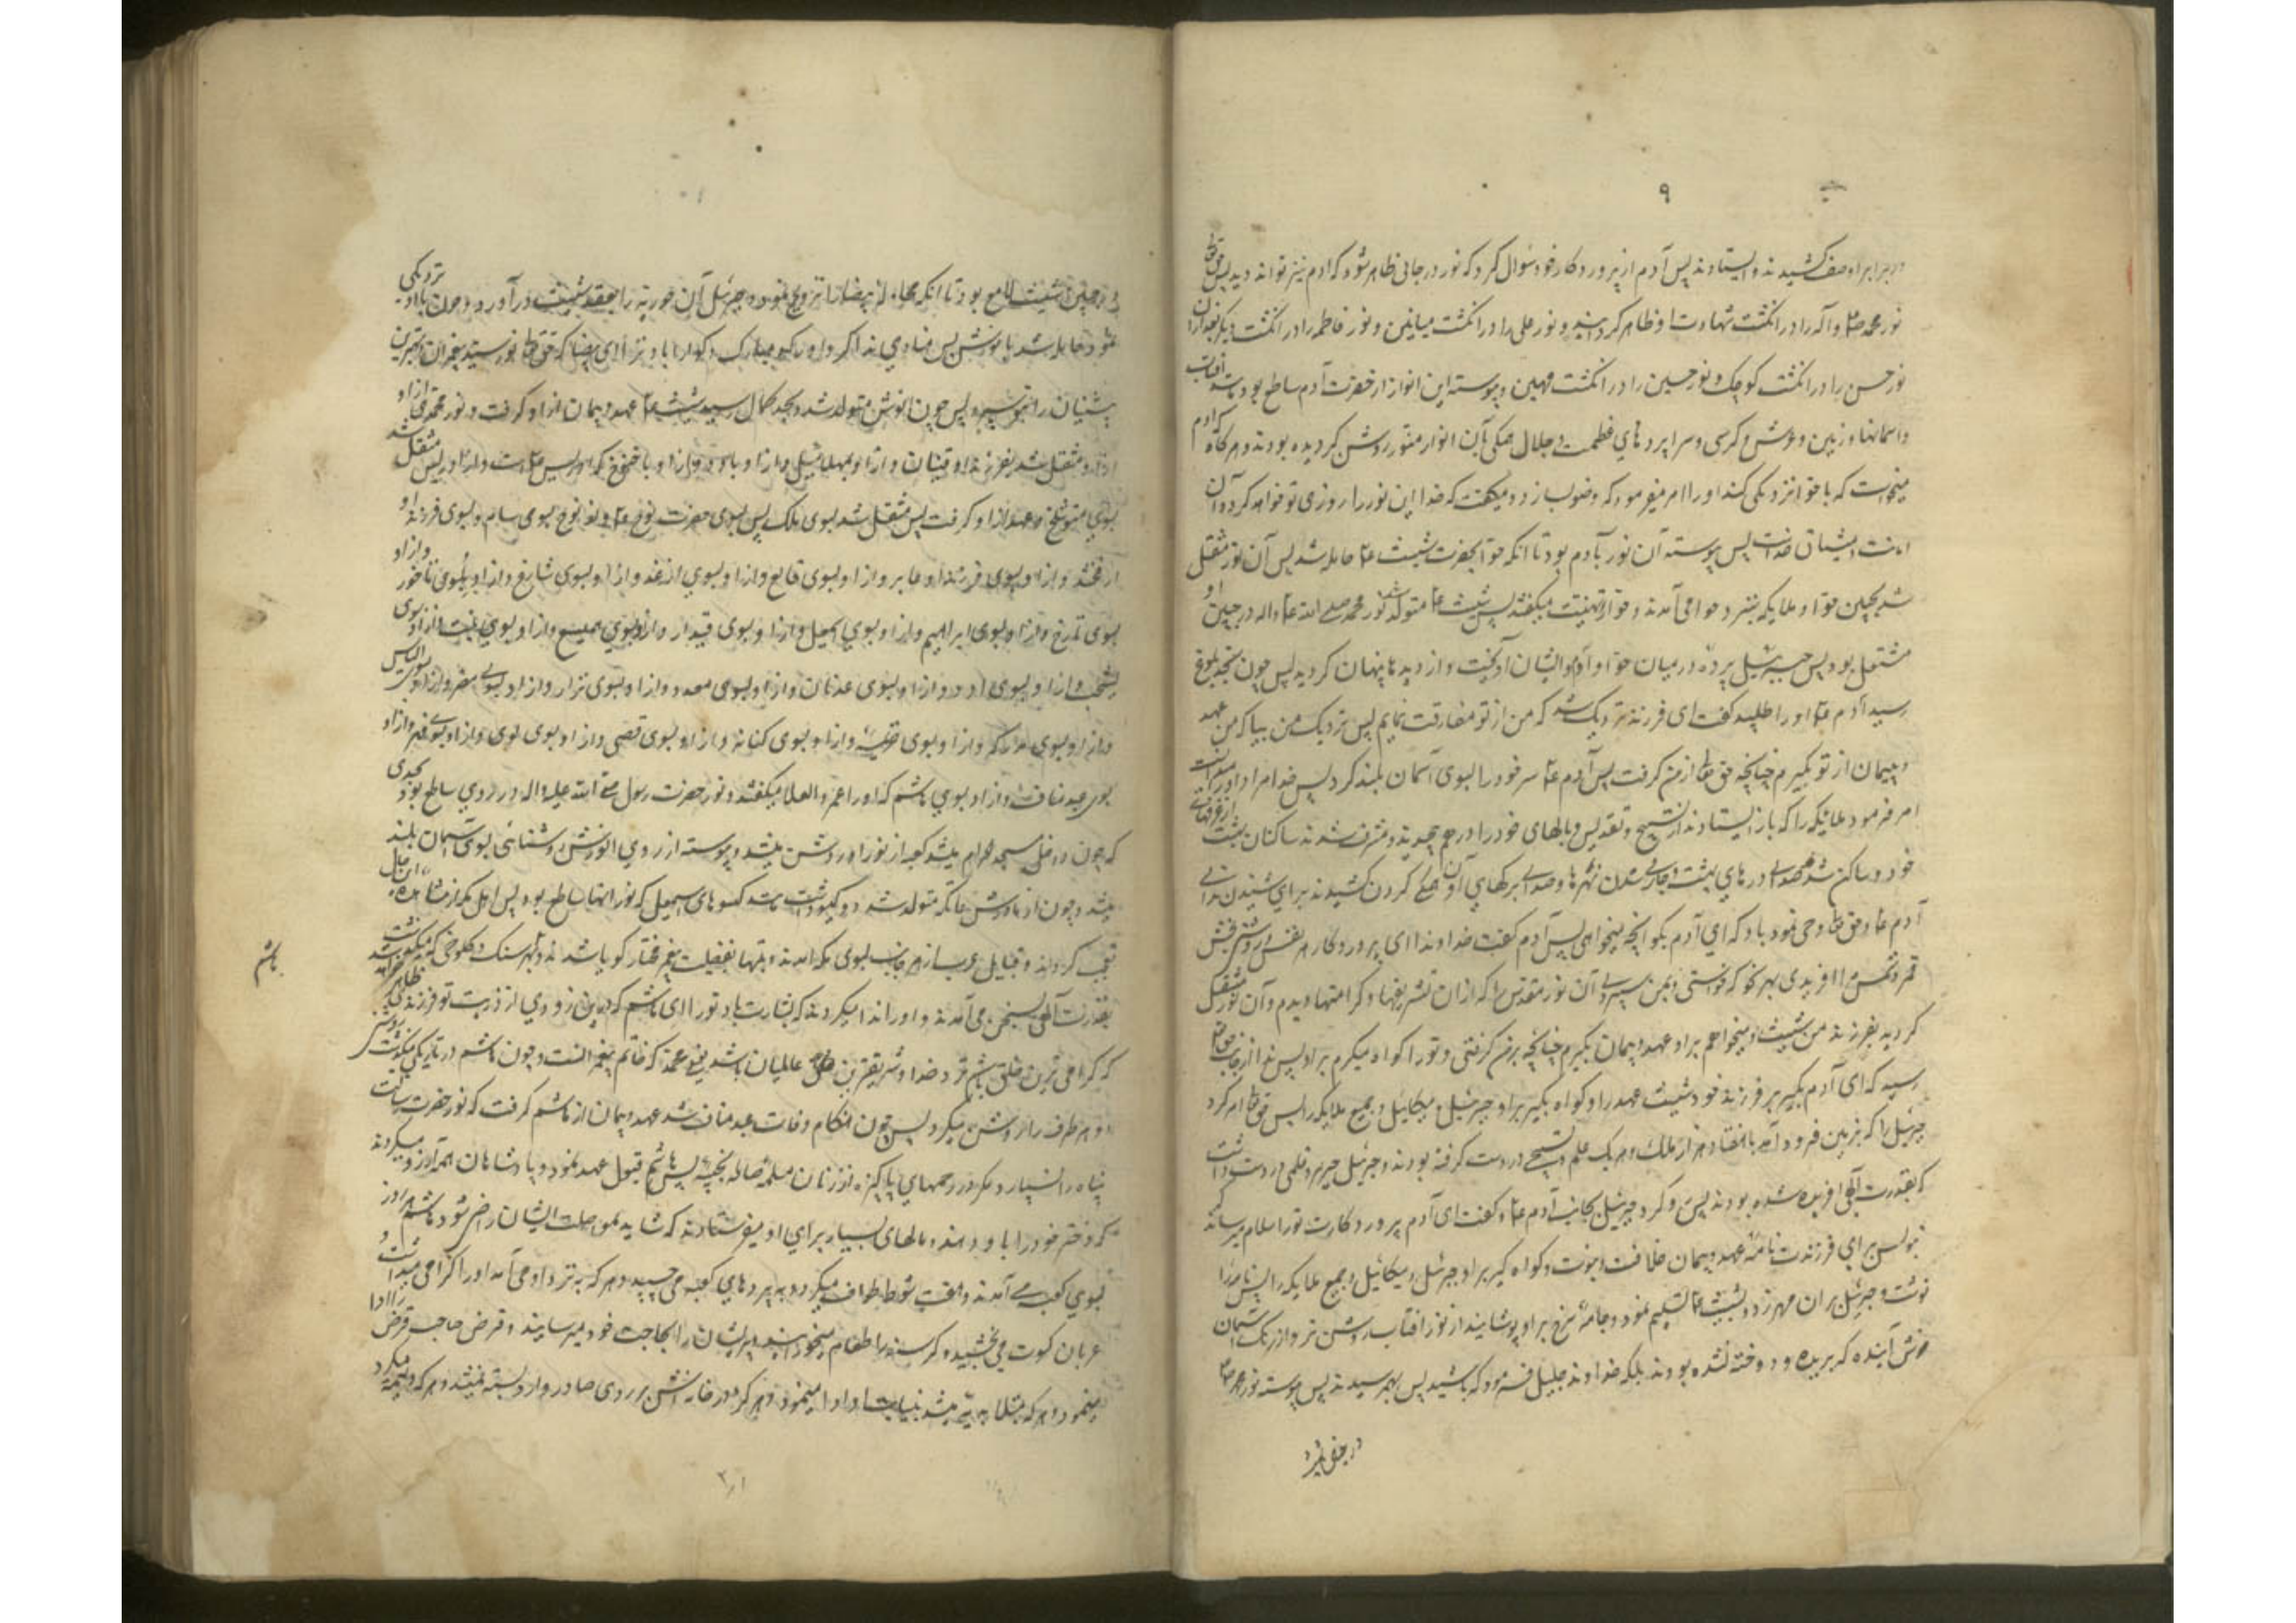 ۹
در برابر او صف کشیدند و ایستادند پس آدم از پروردگار خود سؤال کرد که نور در جائی ظاهر شود که ادم نیز تواند دید پس حق تع
نور محمد ص و آله را در انگشت شهادت او ظاهر گردانید و نور علی را در انگشت میانین و نور فاطمه را در انگشت دیگر بعد از آن
نور حسن را در انگشت کوچک و نور حسین را در انگشت مهین و پیوسته این انوار از حضرت آدم ساطع بود مانند آفتاب
و اسمانها و زمین و عرش و کرسی و سراپردهای عظمت و جلال همگی بآن انوار منور و روشن گردیده بودند و هرگاه که ادم
میخواست که با حوا نزدیکی کند او را امر میفرمود که وضو بسازد و میگفت که خدا این نور را روزی تو خواهد کرد و آن
امانت و میثاق خداست پس پیوسته آن نور با آدم بود تا انکه حوا بحضرت شیث ع حامله شد پس آن نور منتقل
شد بجبین حوا و ملایکه بنزد حوا می آمدند و حوا را تهنیت میگفتند پس شیث ع متولد شد نور محمد صلی الله ع واله در جبین او
مشتعل بود پس جبرئیل پرده در میان حوا و آدم و ایشان آویخت و از دیدها پنهان گردید پس چون بحد بلوغ
رسید آدم ع او را طلبید گفت ای فرزند نزدیک شد که من از تو مفارقت نمایم پس نزدیک من بیا که من عهد
و پیمان از تو بگیرم چنانچه حق تع از من گرفت پس آدم ع سر خود را بسوی آسمان بلند کرد پس خدا مراد او را
امر فرمود ملایکه را که باز ایستادند از تسبیح و تقدیس و بالهای خود را در هم پیچیدند و مشرف شدند ساکنان بهشت از غرفهای
خود و ساکن شد صدای درهای بهشت و جاری شدن نهرها و صدای برگهای آن و همگی گردن کشیدند برای شنیدن ندای
آدم ع و حق تع وحی نمود باو که ای آدم بگو انچه میخواهی پس آدم گفت خداوندا ای پروردگار هر نفس و روشنی بخش
قمر و شمس مرا افریدی بهر نحو که خواستی و بمن سپردی آن نور مقدس را که از ان تشریفها و کرامتها دیدم و آن نور منتقل
گردید بفرزند من شیث و میخواهم بر او عهد و پیمان بگیرم چنانچه بر من گرفتی و تو را گواه میگیرم بر او پس ندا از جانب حق تع
رسید که ای آدم بگیر بر فرزند خود شیث عهد را و گواه بگیر بر او جبرئیل و میکائیل و جمیع ملایکه را پس حق تع امر کرد
جبرئیل را که بزمین فرود آمد با هفتاد هزار ملک و هر یک علم تسبیحی در دست گرفته بودند و جبرئیل حریر و قلمی در دست داشت
که بقدرت الهی افریده شده بودند پس رو کرد جبرئیل بجانب آدم ع و گفت ای آدم پروردگارت تو را سلام میرساند که
بنویس برای فرزندت نامه عهد و پیمان خلافت و نبوت و گواه گیر بر او جبرئیل و میکائیل و جمیع ملایکه را پس نامه را
نوشت و جبرئیل بر ان مهر زد و بشیث ع تسلیم نمود و جامه سرخ بر او پوشانید از نور افتاب روشن تر و از رنگ آسمان
خوش آینده که بریده و دوخته نشده بودند بلکه خداوند جلیل فرمود که باشید پس بهم رسیدند پس پیوسته نور محمد ص
در جبین شیث لامع بود تا انکه محاوله بیضا را تزویج نمود و جبرئیل آن حوریه را بعقد شیث درآورد و چون با او نزدیکی
نمود حامله شد بانوش پس منادی ندا کرد او را که مبارک و گوارا باد تو را ای بیضا که حق تع نور سید پیغمبران و بهترین
پیشینیان را بتو سپرد پس چون انوش متولد شد و بحد کمال رسید شیث ع عهد و پیمان از او گرفت و نور محمدی از او
منتقل شد بفرزند او قینان و از او بمهلائیل و از او با و از او باخنوخ که ادریس است و از ادریس منتقل شد
بسوی متوشلخ و عهد از او گرفت پس منتقل شد بسوی ملک پس بسوی حضرت نوح ع و از نوح بسوی سام و بسوی فرزند او
ارفخشد و از او بسوی فرزند او عابر و از او بسوی فالع و از او بسوی ارغو و از او بسوی شارغ و از او بسوی ناخور و از او
بسوی تارخ و از او بسوی ابراهیم و از او بسوی اسمعیل و از او بسوی قیدار و از او بسوی همیسع و از او بسوی نبت و از او بسوی
یشحب و از او بسوی ادد و از او بسوی عدنان و از او بسوی معد و از او بسوی نزار و از او بسوی مضر و از او بسوی الیاس
و از او بسوی مدرکه و از او بسوی خزیمه و از او بسوی کنانه و از او بسوی قصی و از او بسوی لوی و از او بسوی فهر و از او
بسوی عبد مناف و از او بسوی هاشم که او را عمرو العلا میگفتند و نور حضرت رسول صلی الله علیه واله در روی ساطع بود بحدی
که چون داخل مسجد الحرام میشد کعبه از نور او روشن میشد و پیوسته از روی انورش روشنائی بسوی آسمان بلند
میشد و چون از مادرش عاتکه متولد شد دو گیسو داشت مانند گیسوهای اسمعیل که نور انها ساطع بود پس اهل مکه از مشاهده این حال
تعجب کردند و قبایل عرب از هر جانب بسوی مکه امدند بفضیلت پیغمبر مختار گویا شدند و بهر سنگ و کلوخی که میگذشت
هاشم
بقدرت الهی بسخن می آمدند و او را ندا میکردند که بشارت باد تو را ای هاشم که در این زودی از ذریت تو فرزندی ظاهر خواهد شد
که گرامی ترین خلق باشد نزد خدا و شریفترین عالمیان باشد یعنی محمد که خاتم پیغمبرانست و چون هاشم در تاریکی میگذشت
هر طرف را روشن میکرد پس چون هنگام وفات عبد مناف شد عهد و پیمان از هاشم گرفت که نور حضرت رسالت
پناه را نسپارد مگر در رحمهای پاکیزه از زنان مسلمه صالحه نجیبه پس هاشم قبول عهد نمود و پادشاهان همه آرزو میکردند
که دختر خود را باو دهند و مالهای بسیار برای او میفرستادند که شاید بمواصلت ایشان راضی شود و هاشم هر روز
بسوی کعبه می آمد و هفت شوط طواف میکرد و به پردهای کعبه می چسپید و هر که به نزد او می آمد او را گرامی میداشت و
عریان کسوت می بخشید و گرسنه را طعام میخورانید و پریشان را بحاجت خود میرسانید و قرض صاحب قرض را ادا
مینمود و هر که مبتلا به دیه میشد بنیابت او ادا مینمود و هرگز در خانه اش بر روی صادر و وارد بسته نمیشد و هر که ولیمه میکرد